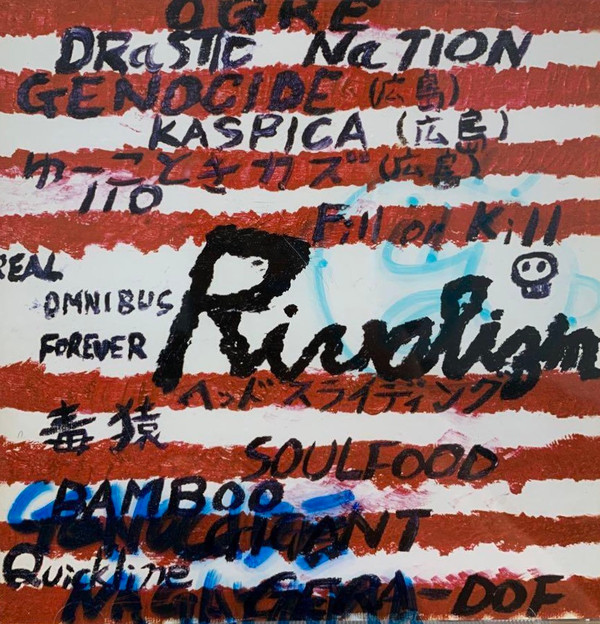 OGRE
DRaSTIC NaTION
GENOCIDE (広島)
KASPICA (広島)
ゆーことき カズ (広島)
Fill or Kill
REAL
OMNIBUS
FOREVER
Rivalizm
ヘッドスライディング
毒猿
SOULFOOD
BAMBOO
Quickline